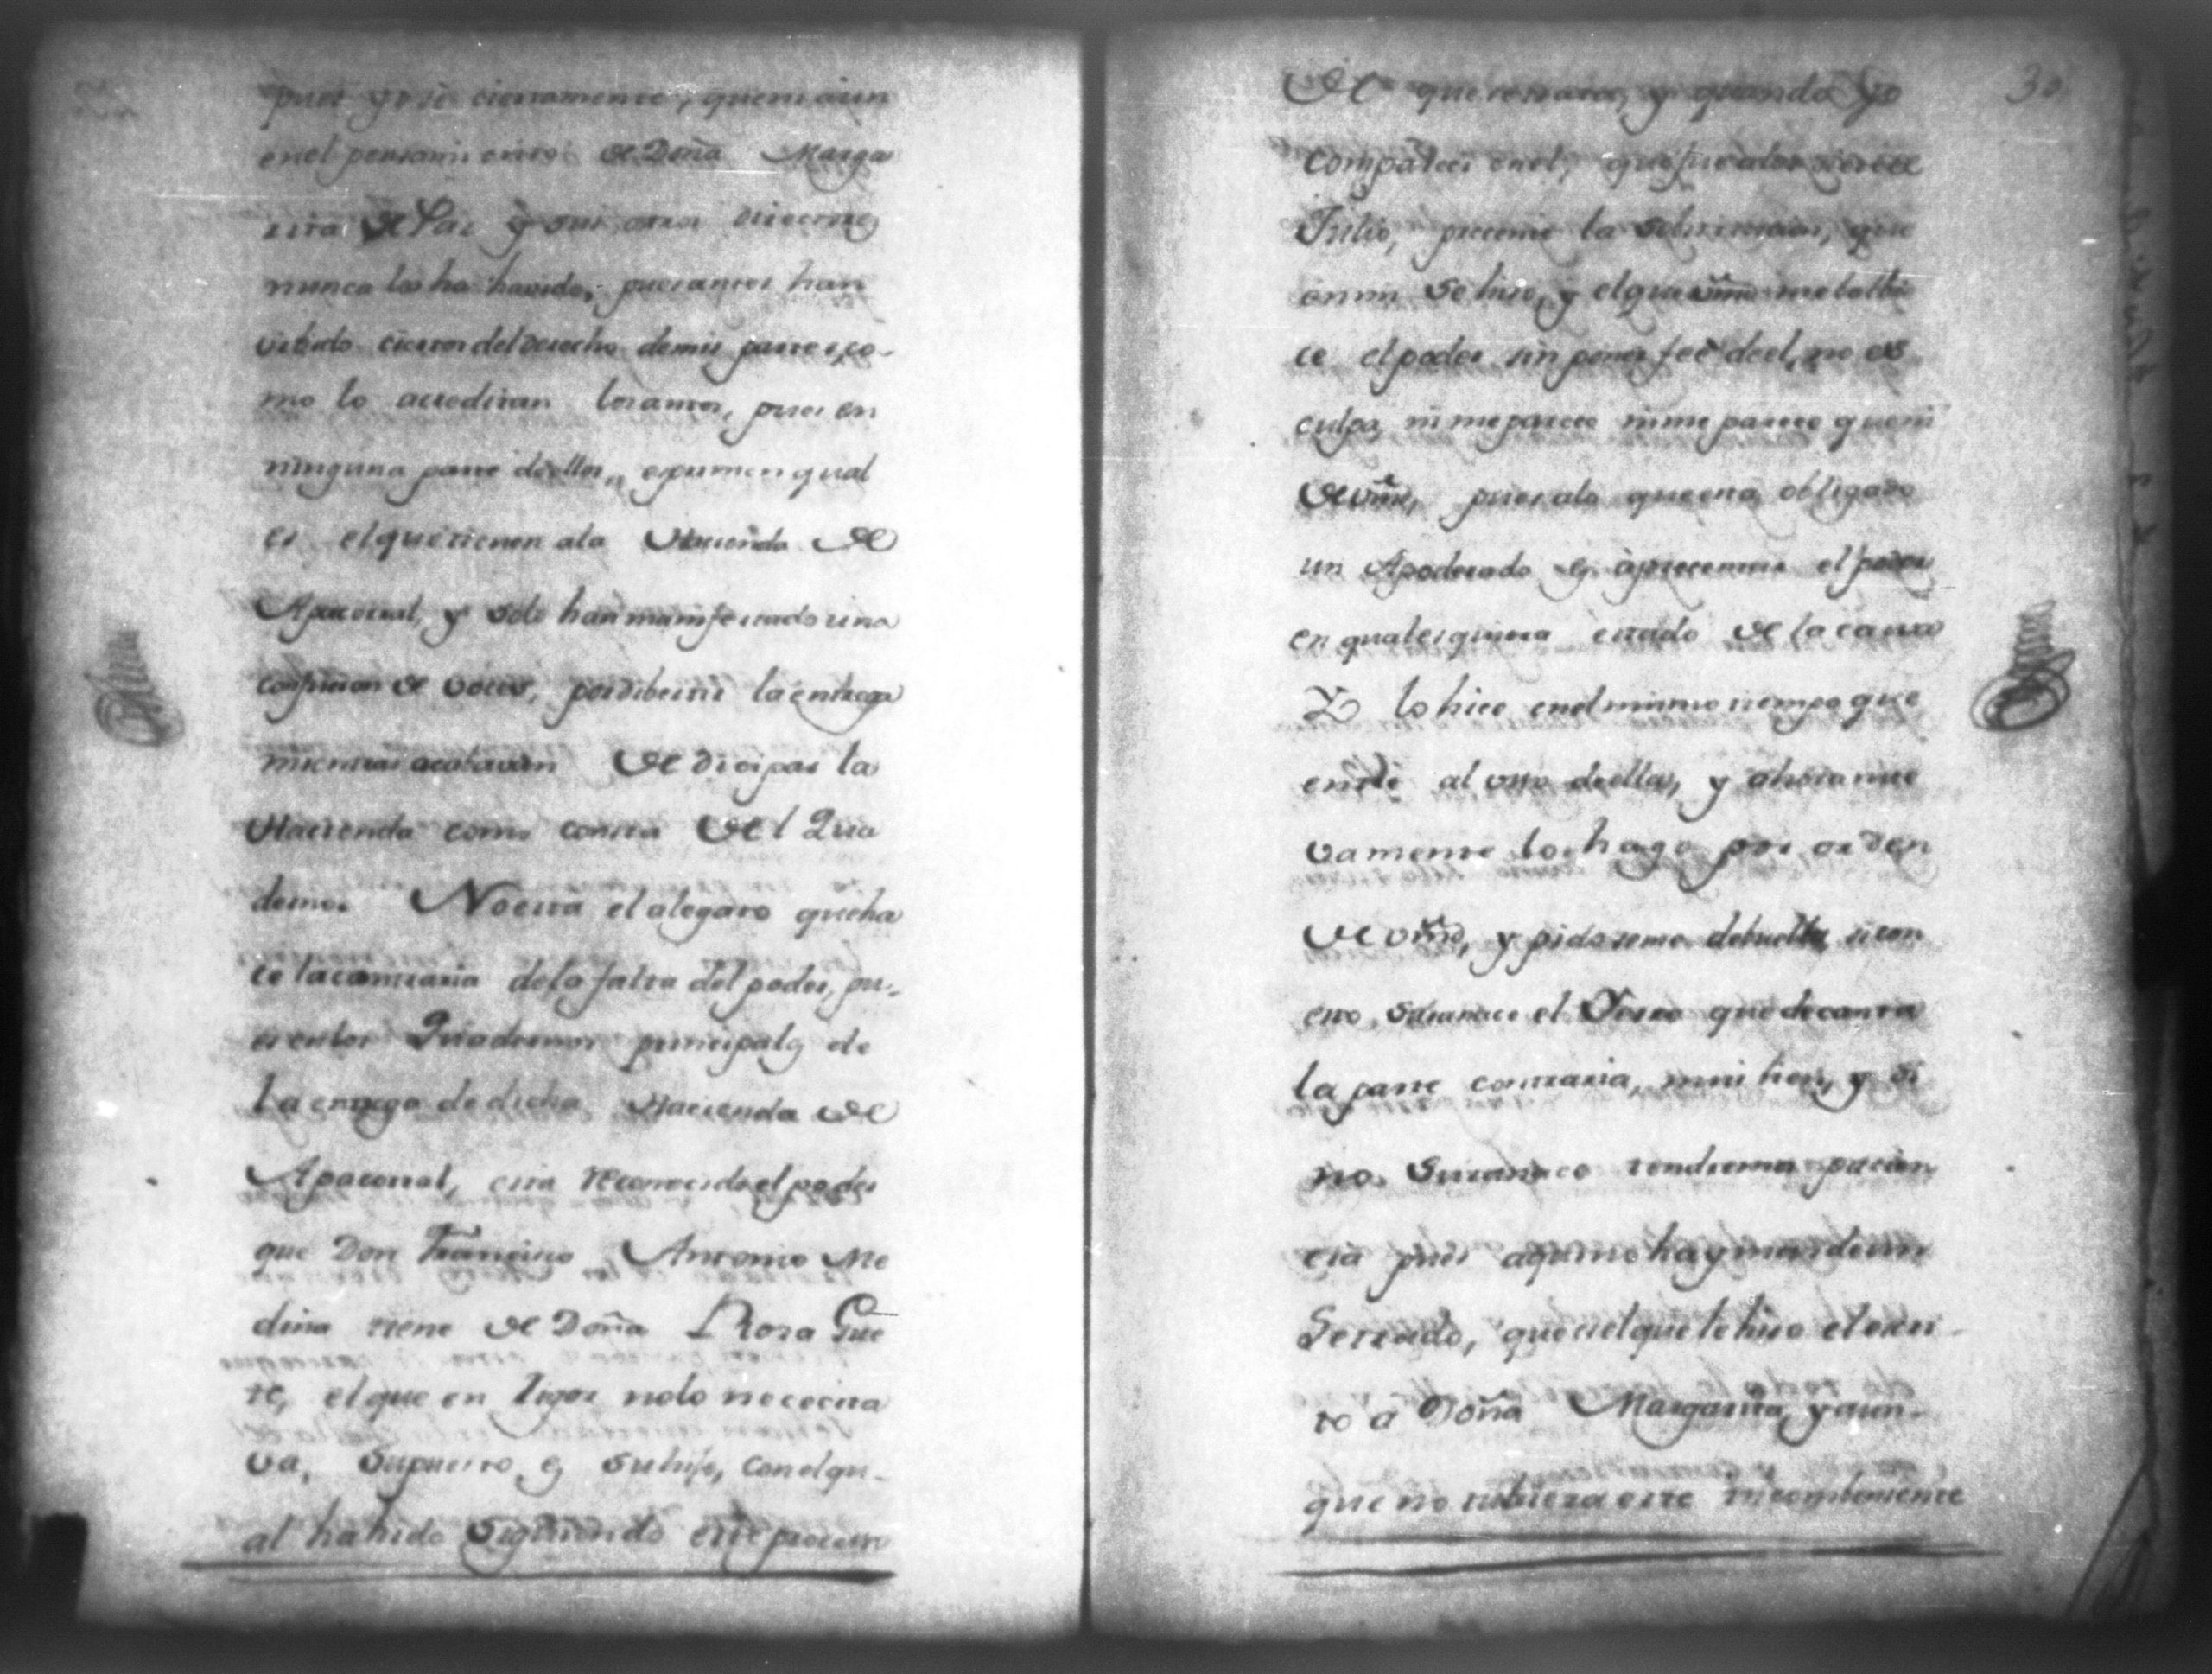 pues yo sé ciertamente, que ni aun
en el pensamiento de Doña Marga
rita de Paz y sus
nunca los ha havido, pues antes han
ciertos del derecho de mis partes, co-
mo lo acreditan los autos, pues en
ninguna parte de ellos, espumen qual
es el que tienen ala Hacienda de
Apacorral, y solo han manifestado una
confusion de voces, por diberttir la entrega
mientras acabavan de dicipar la
Hacienda como consta del Qua
derno. No esta el alegato que ha
ce la contraria de la falta del poder, pu-
es en los Quadernos principales de
la entrega de dicha Hacienda de
Apacorral, esta reconocido el poder
que Don Francisco Antonio Me
dina tiene de Doña Rosa Gue
te, el que en rigor nolo nececita
va, Supuesto es su hijo, con el qu-
al ha havido siguiendo este
30
De que se trata, y quando yo
comparecí en el, que fue alos
Julio, precente la sobstitucion, que
en mi se hizo, y el que vmd me
ce el poder sin poner feé deel, no es
culpa, ni me parece ni me parece que ni
de vmd, pues alo que esta obligado
un Apoderado es, aprecentar el poder
en qualesquiera estado de la causa
Y lo hice en el mismo tiempo que
entré al uso de ella, y ahora nue
vamente lo hago por orden
de vmd, y pido seme debuelba, si con
esto, Satanace el que decanta
la parte contraria, mui bien, y si
no, Satanace tendremos pacien
cia pues aqui no hay mas de un
Serrado, que es el que le hizo el
to a Doña Margarita, y aun-
que no tubiera este incombeniente